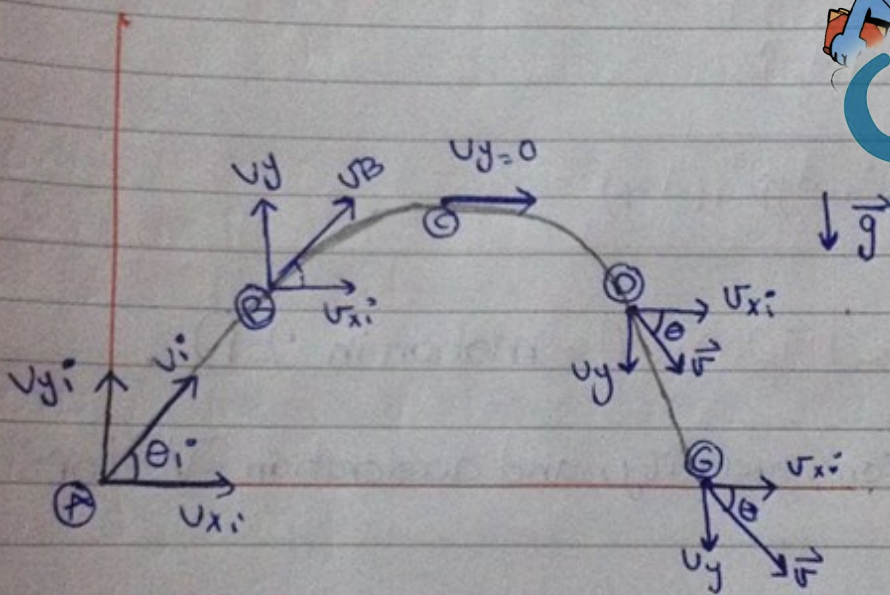 vy=0
vy
vB
C
g
B
vxi
D
vxi
θ
vy
v
vyi
vi
θi
A
vxi
G
vxi
θ
vy
v